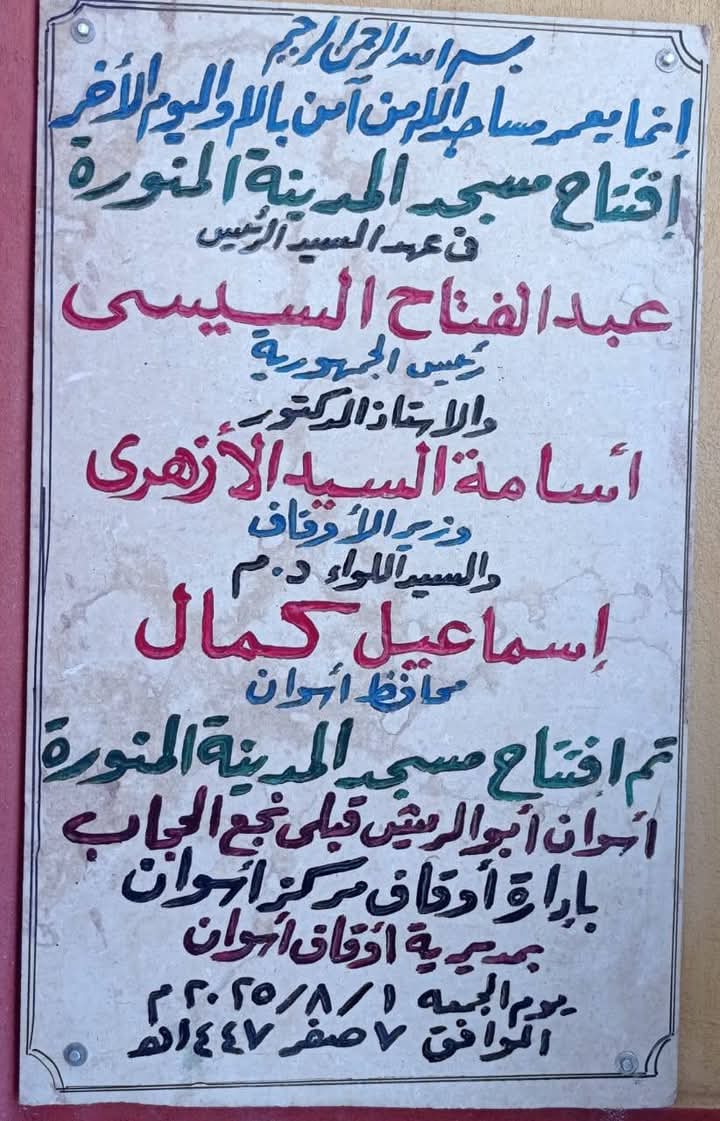 بسم الله الرحمن الرحيم
إنما يعمر مساجد الله من آمن بالله واليوم الأخر
إفتتاح مسجد المدينة المنورة
في عهد السيد الرئيس
عبد الفتاح السيسى
رئيس الجمهورية
والاستاذ الدكتور
أسامة السيد الأزهرى
وزير الأوقاف
والسيد اللواء د.م
إسماعيل كمال
محافظ أسوان
تم إفتتاح مسجد المدينة المنورة
أسوان أبو الريش قبلى نجع الحجاب
بإدارة أوقاف مركز أسوان
بمديرية أوقاف أسوان
يوم الجمعه ٢٠٢٥/٨/١ م
الموافق ٧ صفر ١٤٤٧هـ